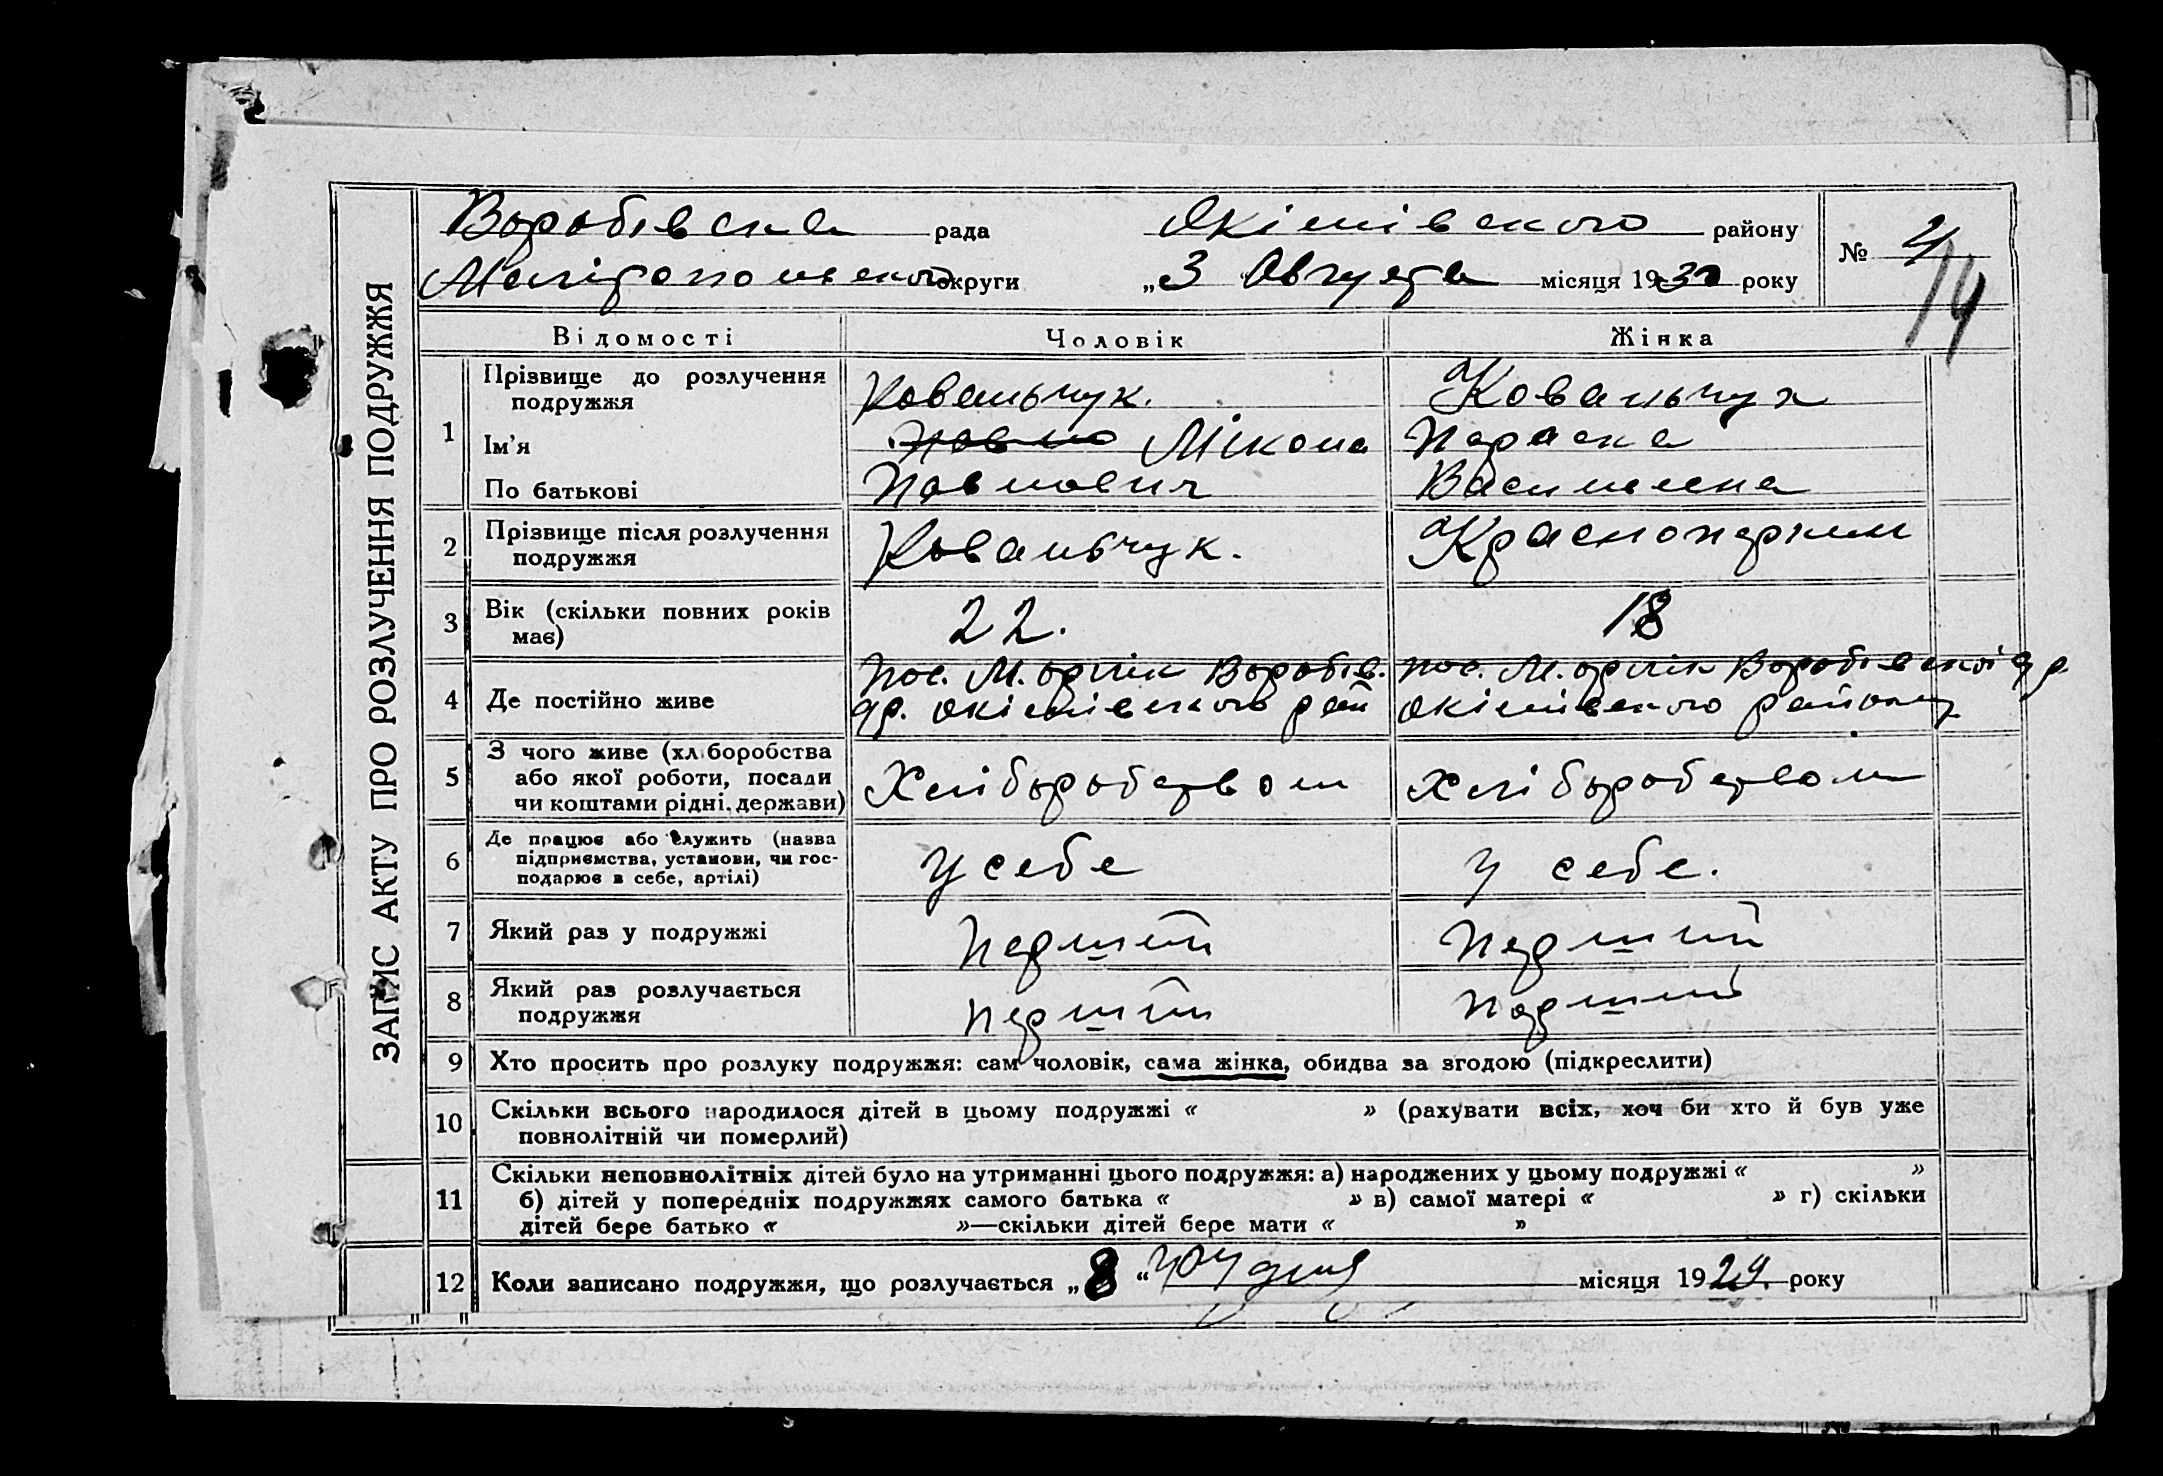 ЗАПИС АКТУ ПРО РОЗЛУЧЕННЯ ПОДРУЖЖЯ
Воробівска рада Якімівського району
Мелітопольської округи „3 Августа місяця 1930 року
№ 4
14
Відомості Чоловік Жінка
1 Прізвище до розлучення подружжя Ковальчук. Ковальчук
Ім'я Павло Мікола Параска
По батькові Павлович Василевна
2 Прізвище після розлучення подружжя Ковальчук.
3 Вік (скільки повних років має) 22. 18
4 Де постійно живе
пос. М. орлік Воробів. пос. М. орлік Воробівської др.
др. Якімівського рай Якімівського району
5 З чого живе (хліборобства
або якої роботи, посади
чи коштами рідні, держави) Хліборобством Хліборобством
6 Де працює або служить (назва
підприємства, установи, чи гос-
подарює в себе, артілі) У себе У себе.
7 Який раз у подружжі Перший Перший
8 Який раз розлучається
подружжя Перший Перший
9 Хто просить про розлуку подружжя: сам чоловік, сама жінка, обидва за згодою (підкреслити)
10 Скільки всього народилося дітей в цьому подружжі « » (рахувати всіх, хоч би хто й був уже
повнолітній чи померлий)
11 Скільки неповнолітніх дітей було на утриманні цього подружжя: а) народжених у цьому подружжі « »
б) дітей у попередніх подружжях самого батька « » в) самої матері « » г) скільки
дітей бере батько « »—скільки дітей бере мати « »
12 Коли записано подружжя, що розлучається „8“ місяця 1929. року